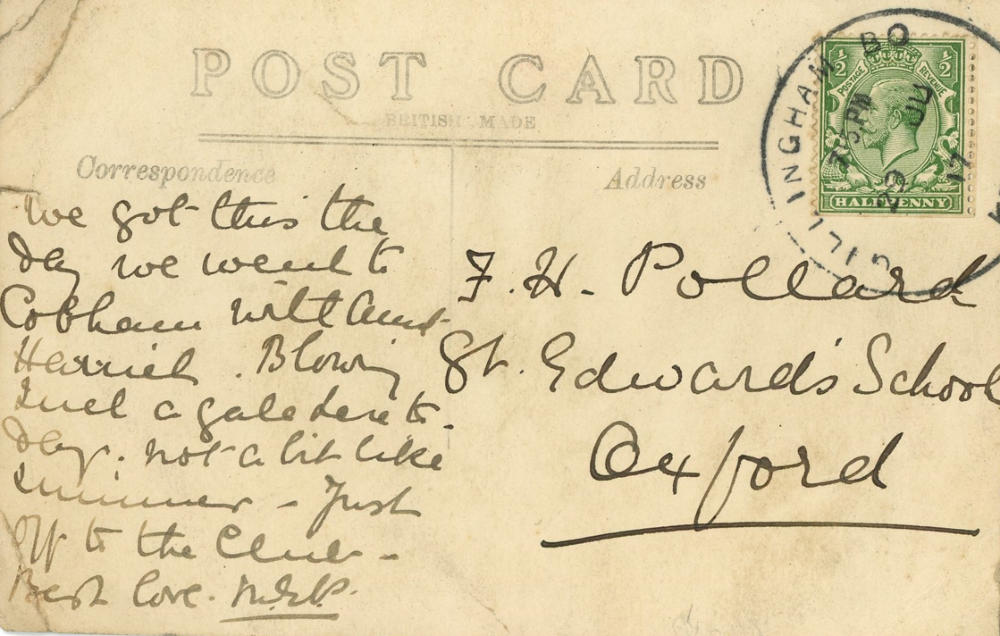 POST CARD
BRITISH MADE
Correspondence
Address
½ ½
POSTAGE REVENUE
HALFPENNY
GILLINGHAM BO
7 45 PM
29 JU
17
We got this the
day we went to
Cobham with Aunt
Harriet. Blowing
such a gale here to-
day. not a bit like
summer - Just
off to the Club -
Best love.
F. H. Pollard
St. Edward's School
Oxford